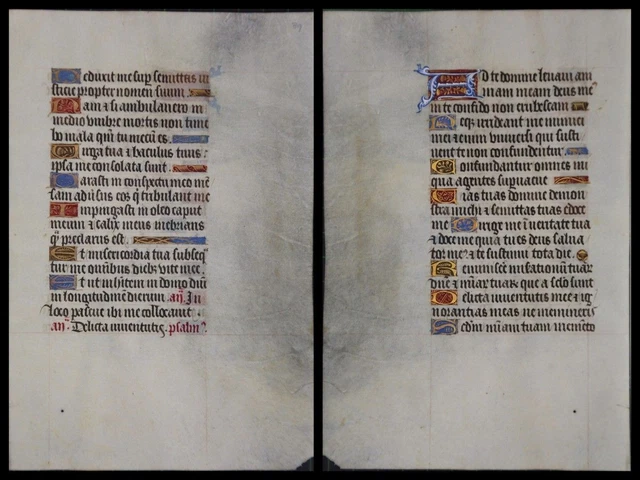 eduxit me sup semittas iu
sticie propter nomen suum
am & si ambulavero in
medio umbre mortis non time
bo mala qm tu mecum es.
irga tua & baculus tuus
ipsa me consolata sunt.
arasti in conspectu meo me
sam adversus eos q tribulant me
mpingasti in oleo caput
meum & calix meus inebrians
q preclarus est.
t misericordia tua subseq
tur me omnibus dieb vite mee
t ut inhitem in domo dni
in longitudinem dierum. an. In
loco pascue ibi me collocavit
an. Delicta iuventutis. psalm
A d te domine levavi am
mam meam deus me
in te confido non erubescam
eq irrideant me inimici
mei etenim universi qui susti
nent te non confundentur.
onfundantur omnes ini
qua agentes supvacue
ias tuas domine demon
stra michi & semittas tuas edoce
me irige me i veritate tua
& doce me quia tu es deus salva
tor me & te sustinui tota die.
eminisce miserationu tuar
dne & miar tuar que a seclo sunt
elicta iuventutis mee & ig
norantias meas ne memineris
ecdm miam tuam memeto